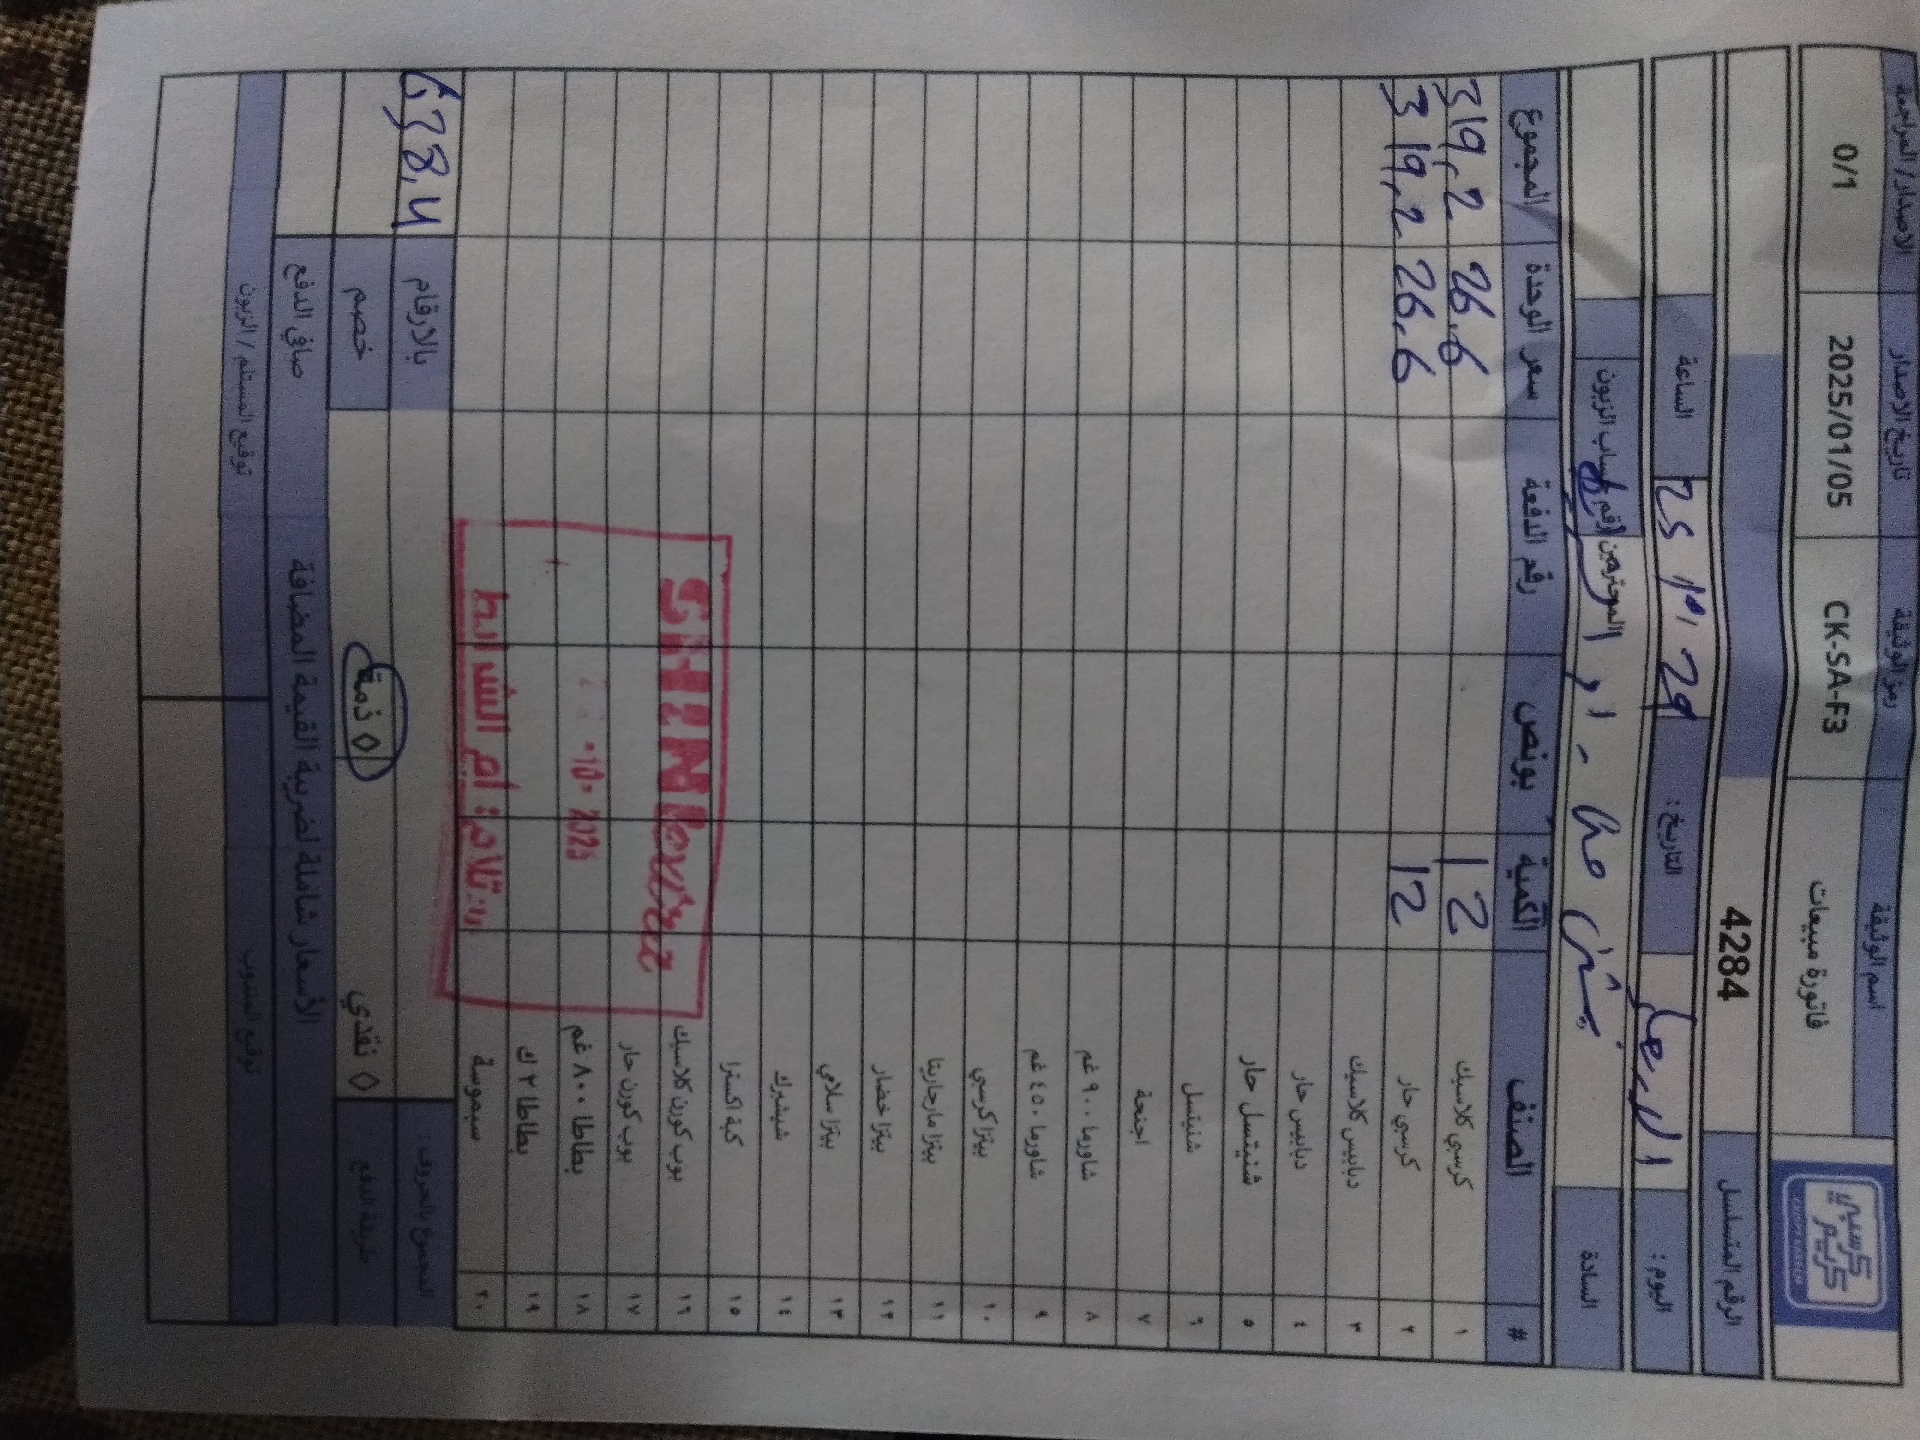 كرسبي كريم
اسم الوثيقة رمز الوثيقة تاريخ الاصدار الاصدار/المراجعة
فاتورة مبيعات CK-SA-F3 2025/01/05 0/1
الرقم المتسلسل 4284
اليوم: الاربعاء التاريخ: 29 10 25 الساعة
السادة المحترمين رقم حساب الزبون
# الصنف الكمية بونص رقم الدفعة سعر الوحدة المجموع
١ كرسبي كلاسيك 12 26,6 319,2
٢ كرسبي حار 12 26,6 319,2
٣ دبابيس كلاسيك
٤ دبابيس حار
٥ شنيتسل حار
٦ شنيتسل
٧ اجنحة
٨ شاورما ٩٠٠ غم
٩ شاورما ٤٥٠ غم
١٠ بيتزا كرسبي
١١ بيتزا مارجاريتا
١٢ بيتزا خضار
١٣ بيتزا سلامي
١٤ شيشبرك
١٥ كبة اكسترا
١٦ بوب كورن كلاسيك
١٧ بوب كورن حار
١٨ بطاطا ٨٠٠ غم
١٩ بطاطا ٢ ك
٢٠ سمبوسة
SHINI
10- 2025
ام الشرايط
المجموع بالحروف: بالارقام 638,4
طريقة الدفع ◊ نقدي ◊ ذمة خصم
الأسعار شاملة لضريبة القيمة المضافة صافي الدفع
توقيع المندوب توقيع المستلم / الزبون